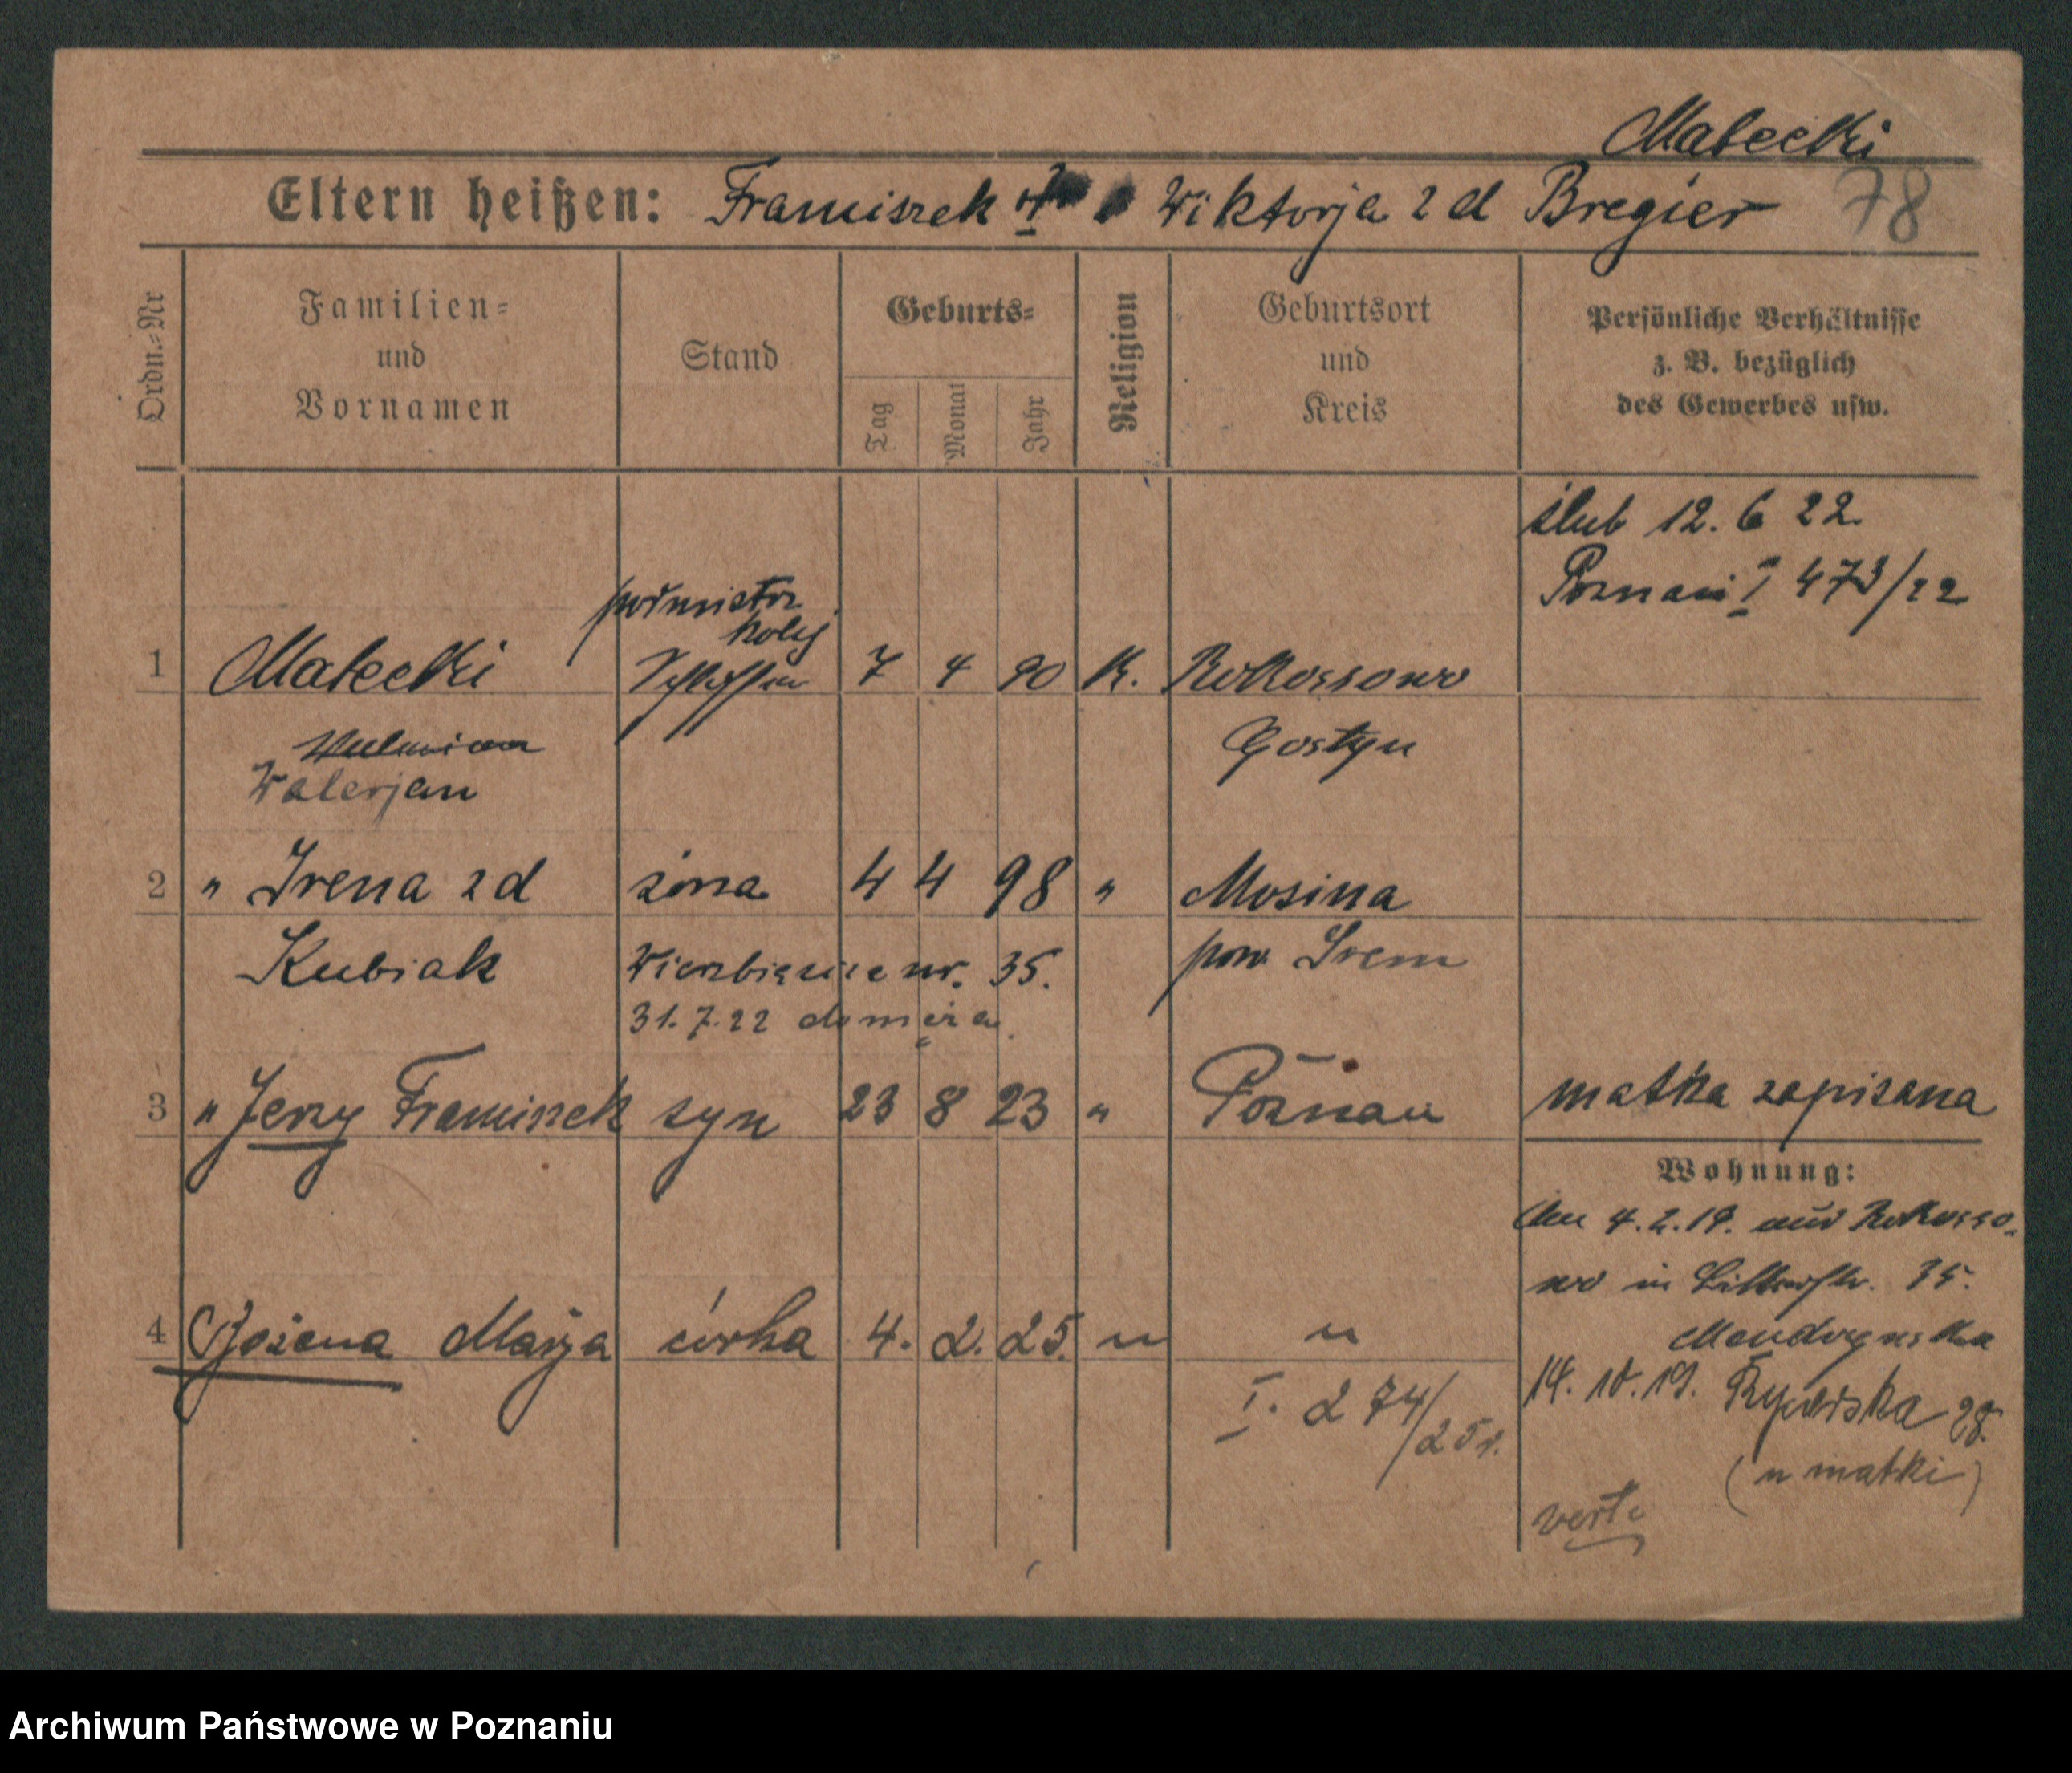 Małecki
Eltern heißen: Franciszek Wiktorja z d Bregier 78
Ordn.-Nr
Familien-
und
Vornamen
Stand
Geburts-
Tag
Monat
Jahr
Religion
Geburtsort
und
Kreis
Persönliche Verhältnisse
z. B. bezüglich
des Gewerbes usw.
ślub 12. 6 22.
Poznań I 473/22
kolej
1 Małecki Schlosser 7 4 90 K. Rokossowo
Gostyn
Walerjan
2 " Irena z d żona 4 4 98 " Mosina
Kubiak Wierzbięcice nr. 35. pow Śrem
31.7.22 do męża
3 " Jerzy Franciszek syn 23 8 23 " Poznań matka zapisana
Wohnung:
4. 2. 19. aus Rokosso-
wo in 35.
4 Bożena Marja córka 4. 2. 25. " "
I. 274/25r.
14. 10. 19. 28.
(u matki)
verte
Archiwum Państwowe w Poznaniu